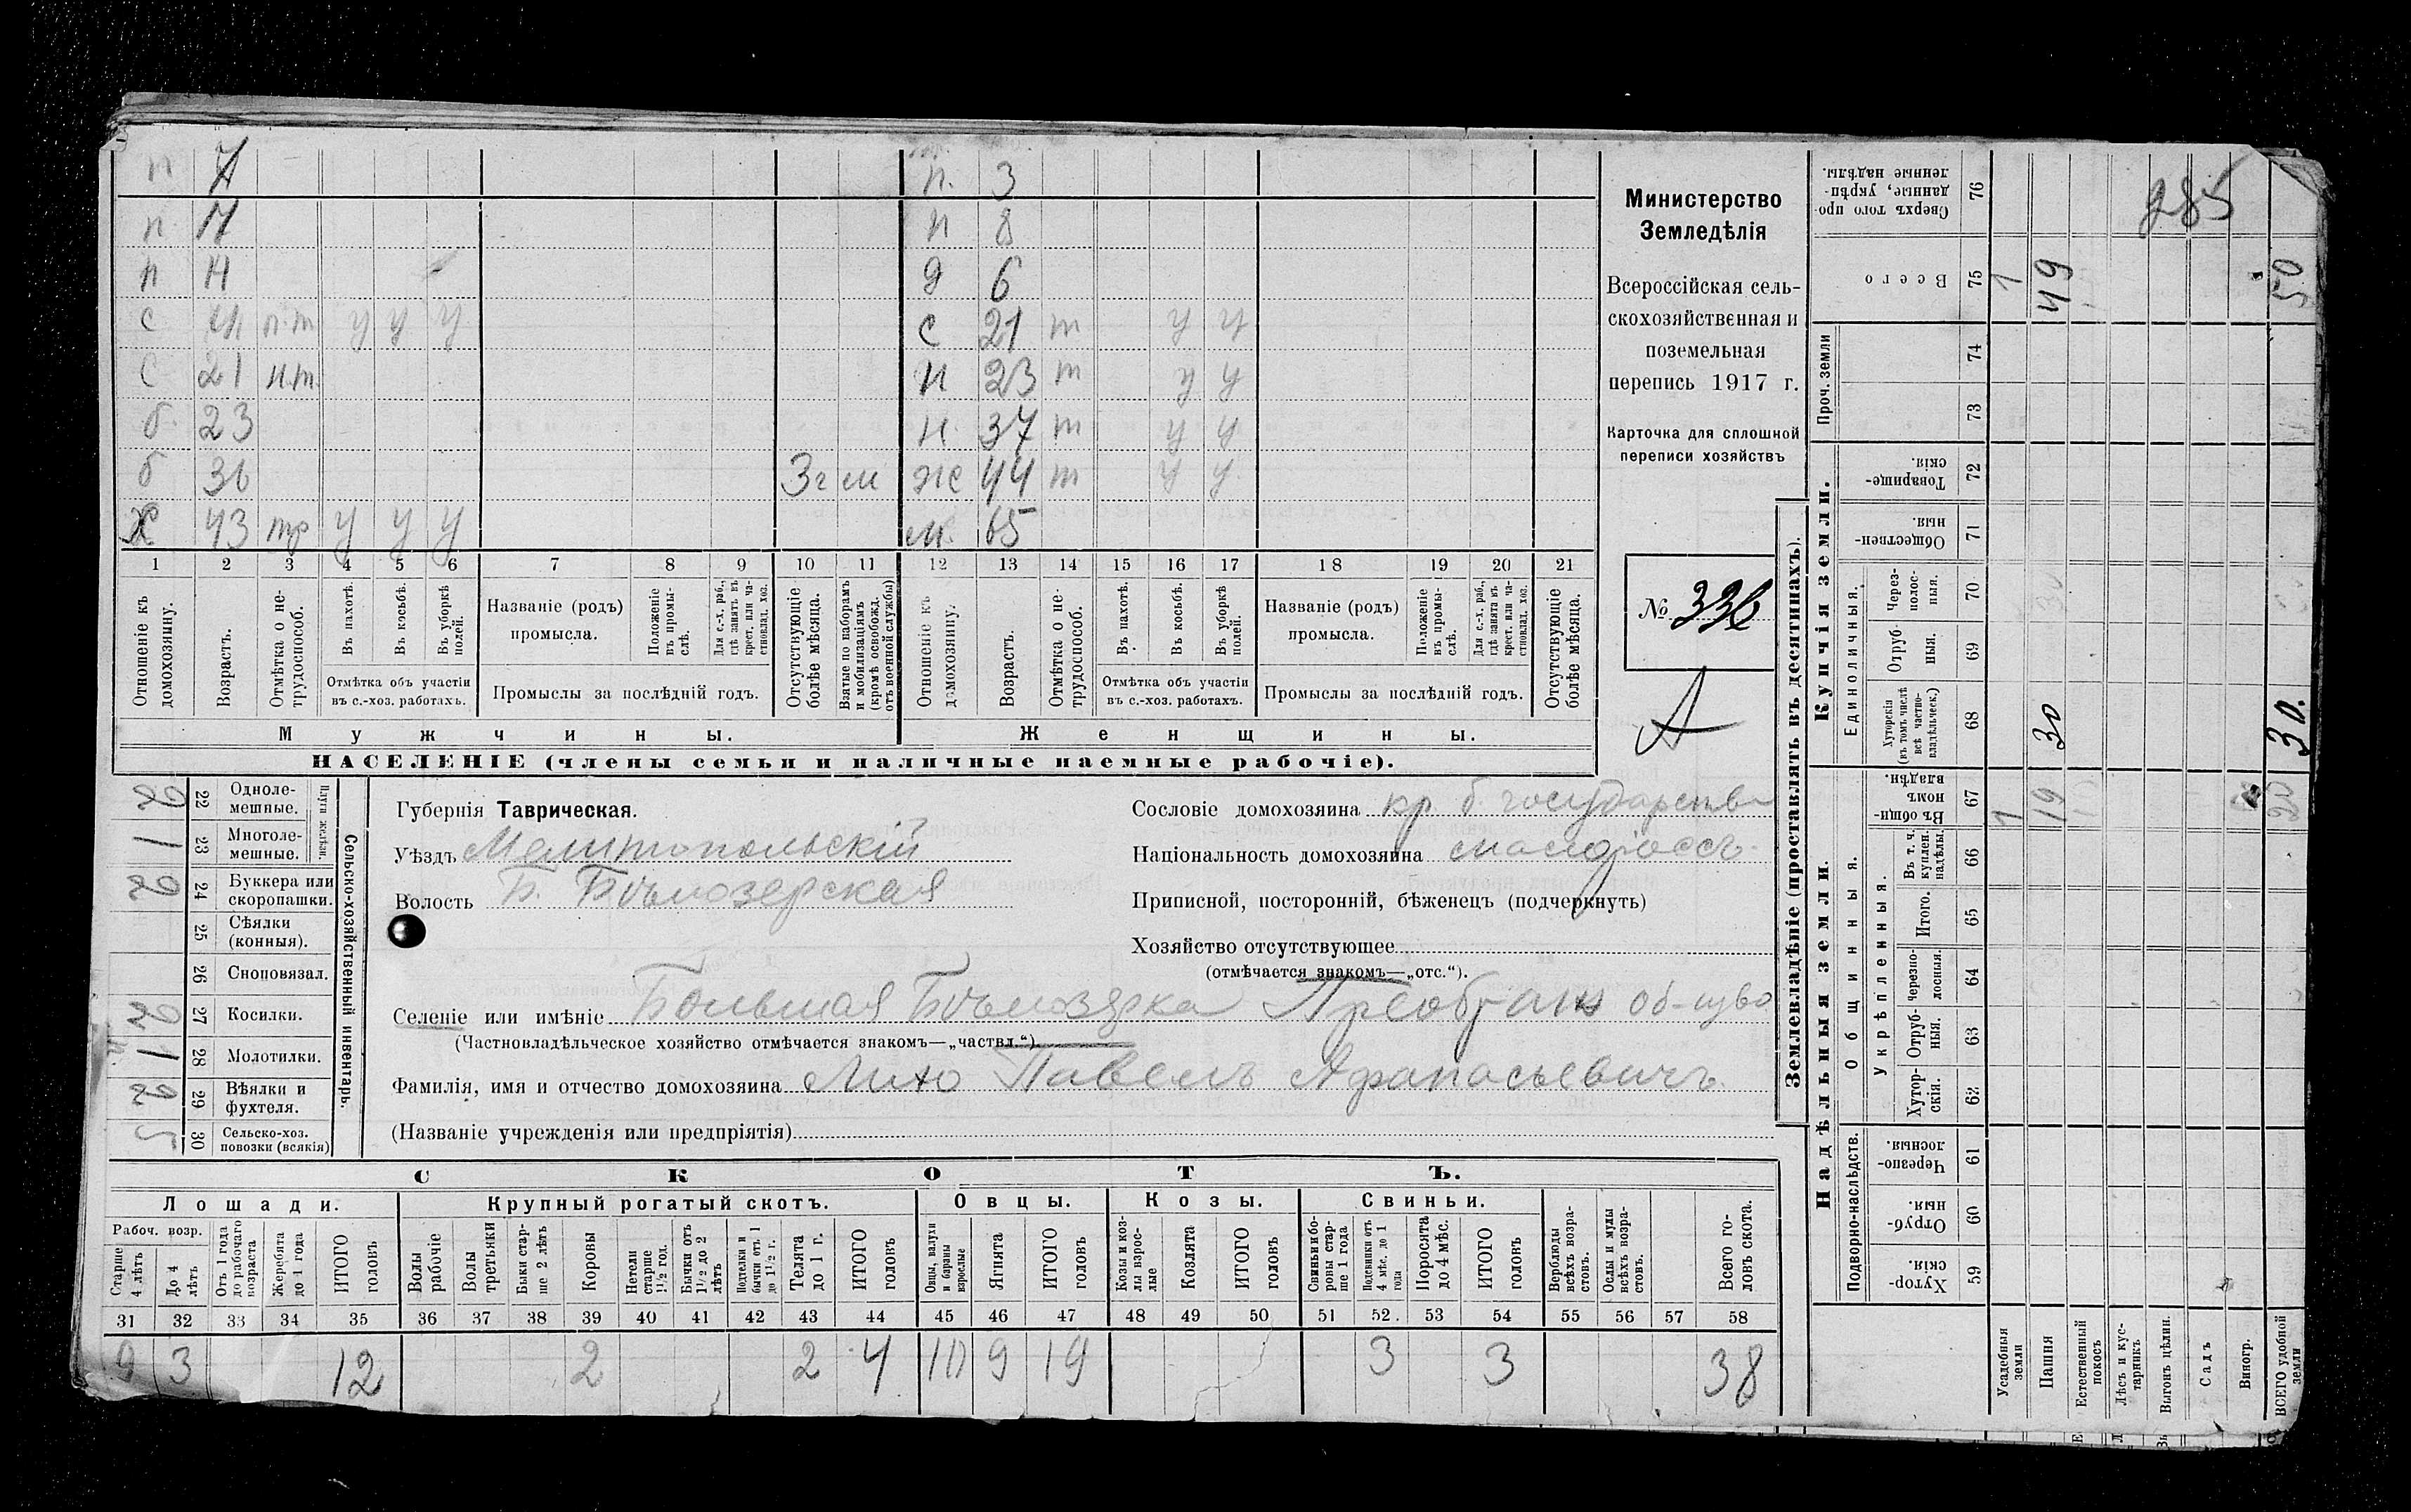 п 7 п. 3
п 4 п 8
п 4 д 6
с п.т у у у с 21 т у у
с 21 н.т. н 23 т у у
б. 23 н. 37 т у у
б 36 3г м ж 44 т у у
х 43 тр у у у м. 65
1 2 3 4 5 6 7 8 9 10 11 12 13 14 15 16 17 18 19 20 21
Отношеніе къ домохозяину.
Возрастъ.
Отмѣтка о нетрудоспособ.
Въ пахотѣ.
Въ косьбѣ.
Въ уборкѣ полей.
Отмѣтка объ участіи
въ с.-хоз. работахъ.
Названіе (родъ)
промысла.
Положеніе въ промыслѣ.
Для с.-х. раб., гдѣ занятъ въ крест. или частновлад. хоз.
Промыслы за послѣдній годъ.
Отсутствующіе болѣе мѣсяца.
Взятые по наборамъ и мобилизаціямъ (кромѣ освобожд. отъ военной службы)
Отношеніе къ домохозяину.
Возрастъ.
Отмѣтка о нетрудоспособ.
Въ пахотѣ.
Въ косьбѣ.
Въ уборкѣ полей.
Отмѣтка объ участіи
въ с.-хоз. работахъ.
Названіе (родъ)
промысла.
Положеніе въ промыслѣ.
Для с.-х. раб., гдѣ занята въ крест. или частновлад. хоз.
Промыслы за послѣдній годъ.
Отсутствующіе болѣе мѣсяца.
Мужчины.
Женщины.
НАСЕЛЕНІЕ (члены семьи и наличные наемные рабочіе).
Министерство
Земледѣлія
Всероссійская сель-
скохозяйственная и
поземельная
перепись 1917 г.
Карточка для сплошной
переписи хозяйствъ
№ 336
А
Сельско-хозяйственный инвентарь.
Плуги желѣзн.
2 22 Одноле-
мешные.
1 23 Многоле-
мешные.
2 24 Буккера или
скоропашки.
25 Сѣялки
(конныя).
26 Сноповязал.
2 27 Косилки.
1 28 Молотилки.
2 29 Вѣялки и
фухтеля.
5 30 Сельско-хоз.
повозки (всякія)
Губернія Таврическая.
Уѣздъ Мелитопольскій
Волость Б. Бѣлозерская
Сословіе домохозяина кр. б. государств
Національность домохозяина малороссъ
Приписной, посторонній, бѣженецъ (подчеркнуть)
Хозяйство отсутствующее
(отмѣчается знакомъ—„отс.“).
Селеніе или имѣніе Большая Бѣлозерка Преображ об-щво
(Частновладѣльческое хозяйство отмѣчается знакомъ—„частвл.“)
Фамилія, имя и отчество домохозяина Лихо Павелъ Афанасьевичъ
(Названіе учрежденія или предпріятія)
СКОТЪ.
Лошади. Крупный рогатый скотъ. Овцы. Козы. Свиньи.
Рабоч. возр.
Старше 4 лѣтъ
До 4 лѣтъ
Отъ 1 года до рабочаго возраста
Жеребята до 1 года
ИТОГО головъ
Волы рабочіе
Волы третьяки
Быки старше 2 лѣтъ
Коровы
Нетели старше 1½ год.
Бычки отъ 1½ до 2 лѣтъ
Подтелки и бычки отъ 1 до 1½ г.
Телята до 1 г.
ИТОГО головъ
Овцы, валухи и бараны взрослые
Ягнята
ИТОГО головъ
Козы и козлы взрослые
Козлята
ИТОГО головъ
Свиньи и боровы старше 1 года
Подсвинки отъ 4 мѣс. до 1 года
Поросята до 4 мѣс.
ИТОГО головъ
Верблюды всѣхъ возрастовъ.
Ослы и мулы всѣхъ возрастовъ.
Всего головъ скота.
31 32 33 34 35 36 37 38 39 40 41 42 43 44 45 46 47 48 49 50 51 52. 53 54 55 56 57 58
9 3 12 2 2 4 10 9 19 3 3 38
Землевладѣніе (проставлять въ десятинахъ).
Купчія земли.
Надѣльныя земли.
Единоличныя.
Общинныя.
Укрѣпленныя.
Подворно-наслѣдств.
Проч. земли
Сверхъ того проданные, укрѣпленные надѣлы. 76
Всего 75 1 49 50
74
73
Товарищескія. 72
Общественныя. 71
Черезполосныя. 70
Отрубныя. 69
Хуторскія (въ томъ числѣ всѣ частновладѣльческ.) 68 30 30.
Въ общинномъ владѣн. 67 1 19 20
Въ т. ч. куплен. надѣлы. 66
Итого. 65
Черезполосныя. 64
Отрубныя. 63
Хуторскія. 62
Черезполосныя. 61
Отрубныя. 60
Хуторскія. 59
285
Усадебныя земли
Пашня
Естественный покосъ
Лѣсъ и кустарникъ
Выгонъ цѣлин.
Садъ
Виногр.
ВСЕГО удобной земли